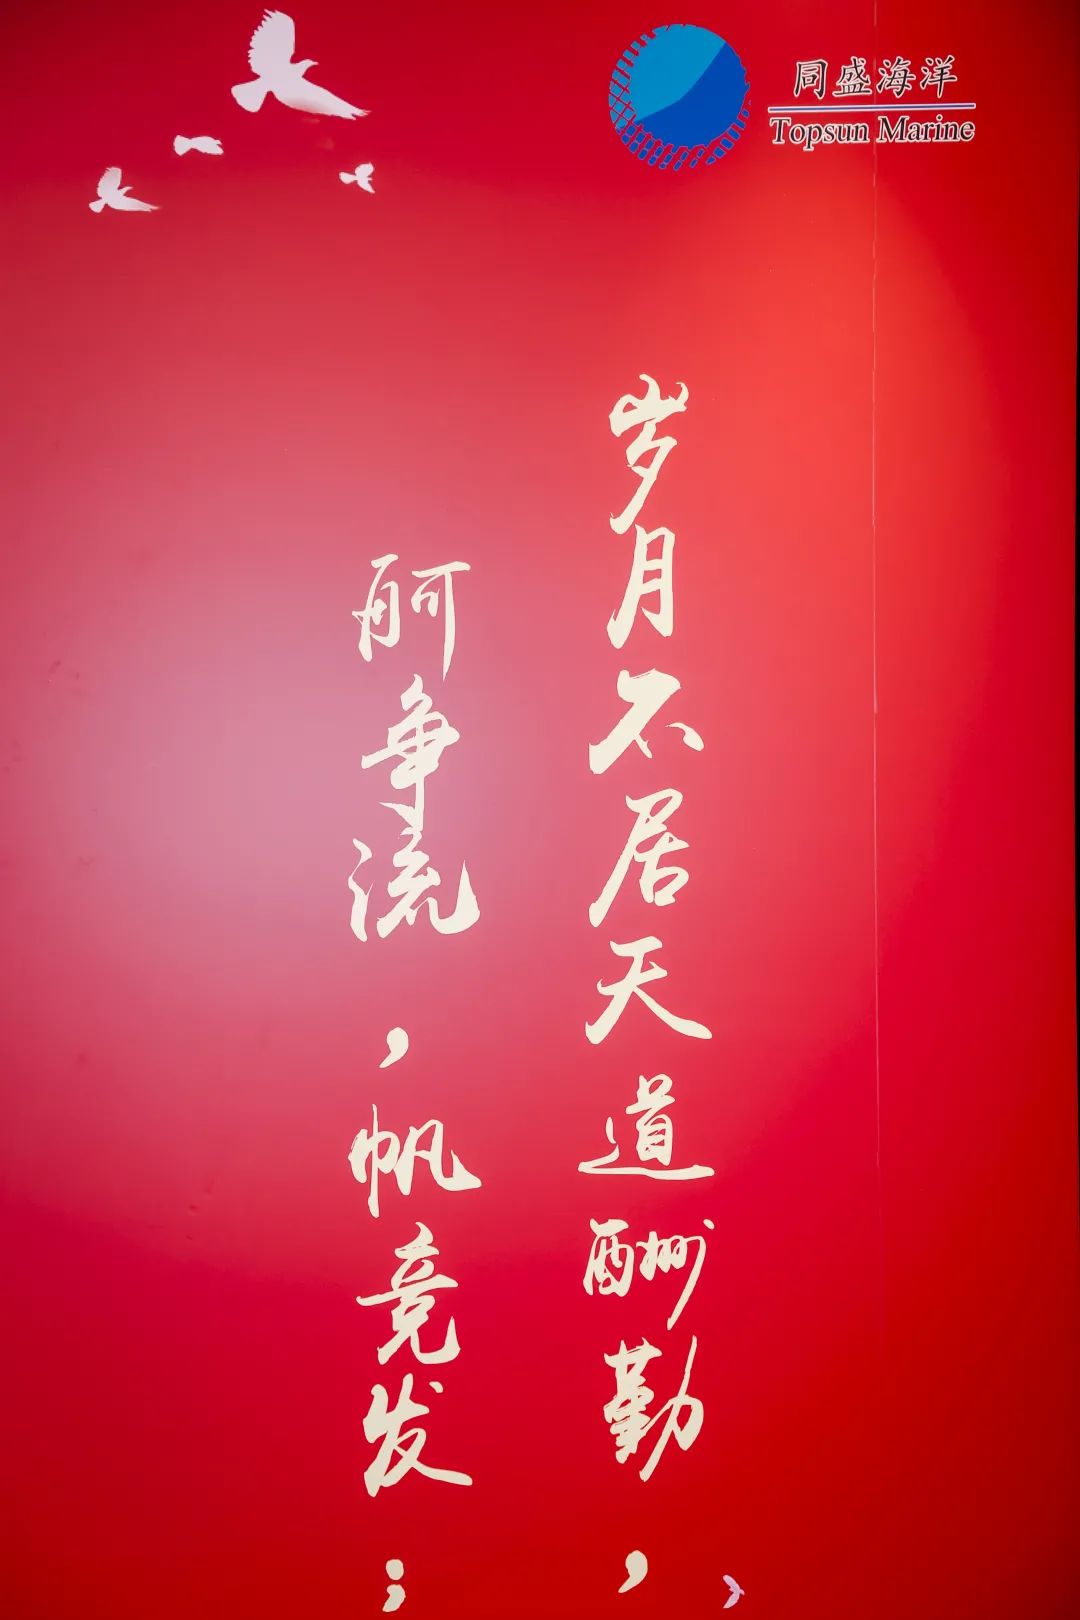 同盛海洋
Topsun Marine
岁月不居天道酬勤，
舸争流，帆竞发；